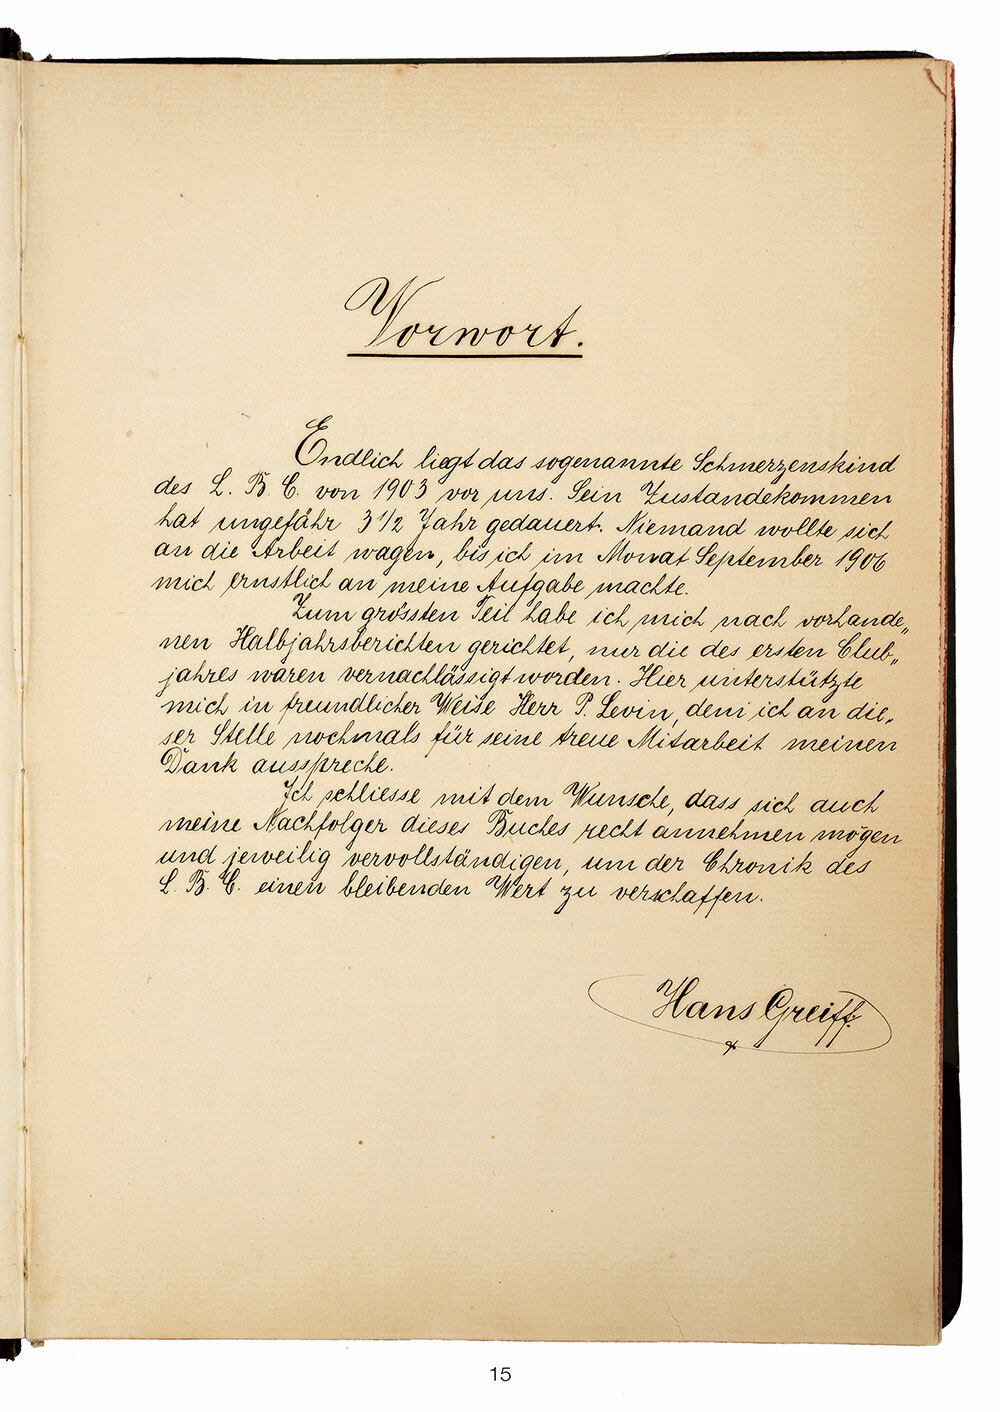 Vorwort.
Endlich liegt das sogenannte Schmerzenskind
des L. B. C. von 1903 vor uns. Sein Zustandekommen
hat ungefähr 3 1/2 Jahr gedauert. Niemand wollte sich
an die Arbeit wagen, bis ich im Monat September 1906
mich ernstlich an meine Aufgabe machte.
Zum grössten Teil habe ich mich nach vorhande„
nen Halbjahrsberichten gerichtet, nur die des ersten Club„
jahres waren vernachlässigt worden. Hier unterstützte
mich in freundlicher Weise Herr P. Levin, dem ich an die„
ser Stelle nochmals für seine treue Mitarbeit meinen
Dank ausspreche.
Ich schliesse mit dem Wunsche, dass sich auch
meine Nachfolger dieses Buches recht annehmen mögen
und jeweilig vervollständigen, um der Chronik des
L. B. C. einen bleibenden Wert zu verschaffen.
Hans Greiff.
15